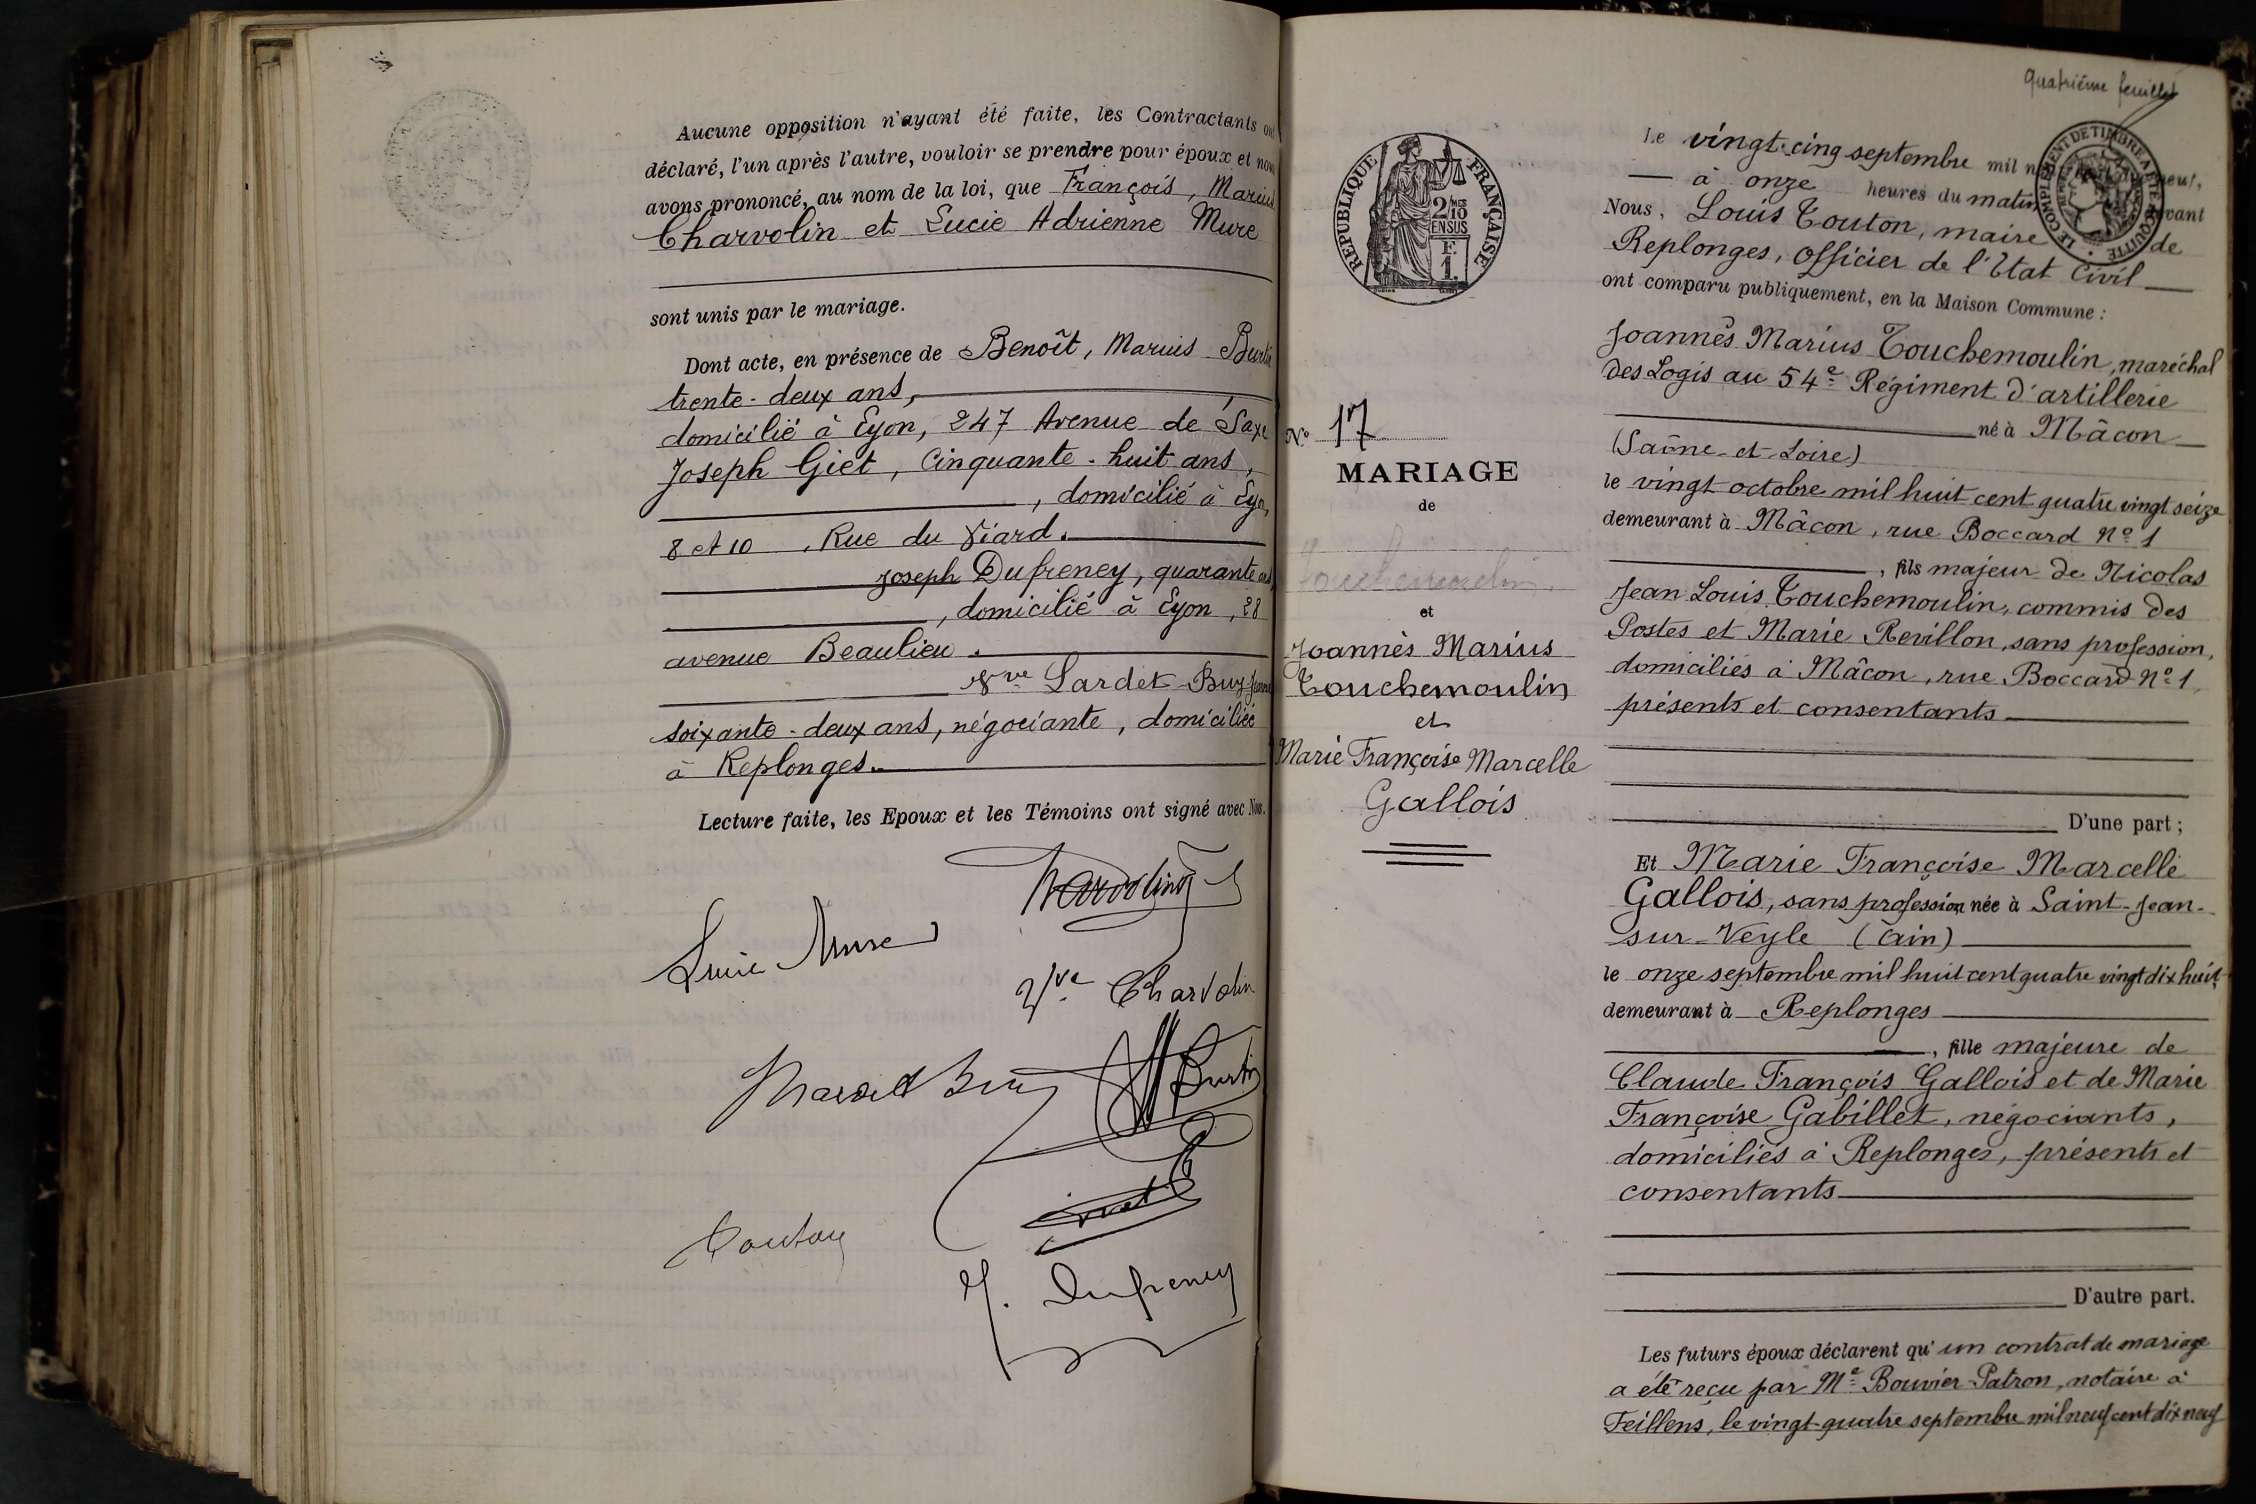 Aucune opposition n'ayant été faite, les Contractants ont
déclaré, l'un après l'autre, vouloir se prendre pour époux et nous
avons prononcé, au nom de la loi, que François, Marius
Charvolin et Lucie Adrienne Mure
sont unis par le mariage.
Dont acte, en présence de Benoît, Marius Burtin
trente-deux ans,
domicilié à Lyon, 247 Avenue de Saxe
Joseph Giet, Cinquante-huit ans,
, domicilié à Lyon,
8 et 10, Rue du Viard.
Joseph Dufreney, quarante ans
, domicilié à Lyon, 28
avenue Beaulieu.
Vve Lardet-Buy Jeanne
soixante-deux ans, négociante, domiciliée
à Replonges.
Lecture faite, les Epoux et les Témoins ont signé avec Nous.
Charvolin
Lucie Mure
Vve Charvolin
Marcel Buy
Burtin
Giet
Touton
J. Dufreney
REPUBLIQUE FRANÇAISE
2/10 EN SUS
F.
1.
Nº 17
MARIAGE
de
Touchemoulin
et
Joannès Marius
Touchemoulin
et
Marie Françoise Marcelle
Gallois
Quatrième feuillet
LE COMPLEMENT DE TIMBRE A ETE ACQUITTE
Le vingt-cinq septembre mil neuf,
à onze heures du matin devant
Nous, Louis Touton, maire de
Replonges, Officier de l'Etat Civil
ont comparu publiquement, en la Maison Commune :
Joannès Marius Touchemoulin, maréchal
des Logis au 54e Régiment d'artillerie
né à Mâcon
(Saône-et-Loire)
le vingt octobre mil huit cent quatre vingt seize
demeurant à Mâcon, rue Boccard Nº 1
, fils majeur de Nicolas
Jean Louis Touchemoulin, commis des
Postes et Marie Revillon, sans profession,
domiciliés à Mâcon, rue Boccard Nº 1,
présents et consentants
D'une part ;
Et Marie Françoise Marcelle
Gallois, sans profession née à Saint-Jean-
sur-Veyle (Ain)
le onze septembre mil huit cent quatre vingt dix huit
demeurant à Replonges
, fille majeure de
Claude François Gallois et de Marie
Françoise Gabillet, négociants,
domiciliés à Replonges, présents et
consentants
D'autre part.
Les futurs époux déclarent qu'un contrat de mariage
a été reçu par Me Bouvier-Patron, notaire à
Feillens, le vingt-quatre septembre mil neuf cent dix neuf